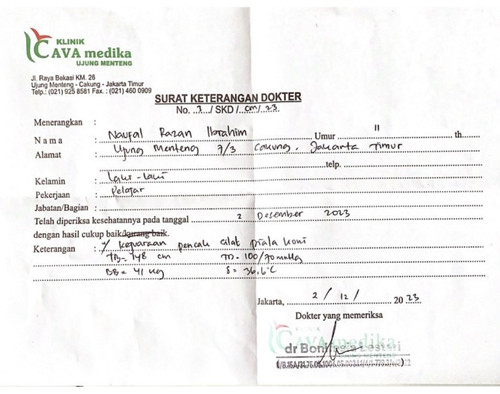 KLINIK
CAVA medika
UJUNG MENTENG
Jl. Raya Bekasi KM. 26
Ujung Menteng - Cakung - Jakarta Timur
Telp.: (021) 925 8581 Fax. : (021) 460 0909
SURAT KETERANGAN DOKTER
No. 1 / SKD / CM / 23
Menerangkan :
Nama : Naufal Razan Ibrahim Umur 11 th.
Alamat : Ujung Menteng 7/3 Cakung, Jakarta Timur
telp.
Kelamin : Laki-laki
Pekerjaan : Pelajar
Jabatan/Bagian :
Telah diperiksa kesehatannya pada tanggal 2 Desember 2023
dengan hasil cukup baik/kurang baik.
Keterangan : % kejuaraan pencak silat piala koni
TB= 148 cm TD= 100/70 mmHg
BB= 41 kg S= 36,6°C
Jakarta, 2 / 12 / 2023
Dokter yang memeriksa
KLINIK
CAVA medika
UJUNG MENTENG
dr Boni